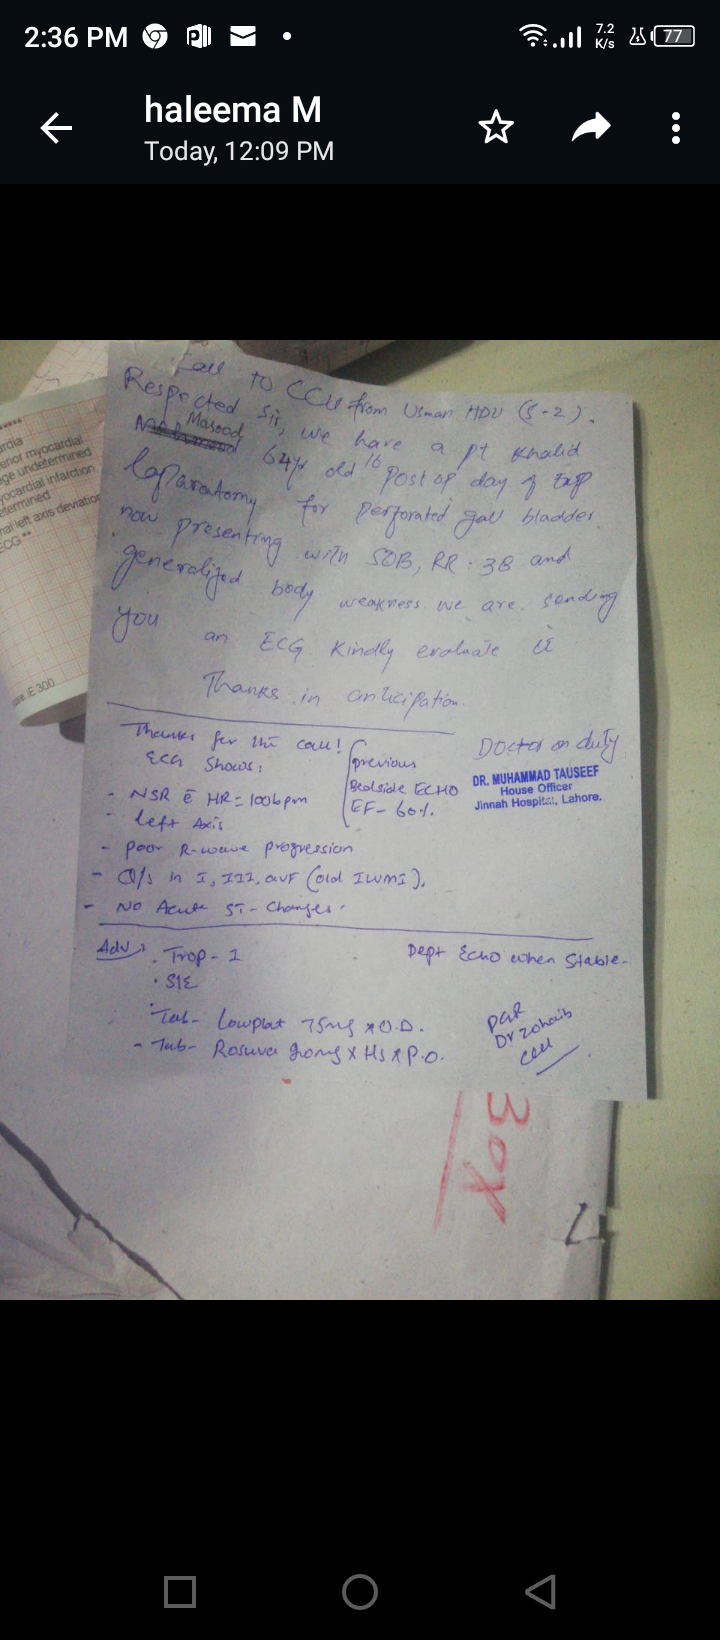 2:36 PM
7.2 K/s
77
haleema M
Today, 12:09 PM
Call to CCU from Usman HDU (S-2).
Respected Sir, we have a pt Khalid
Masood 64yr old 16 post op day of Exp
laparatomy for perforated gall bladder
now presenting with SOB, RR : 38 and
generalized body weakness. we are sending
you an ECG. Kindly evaluate it
Thanks in anticipation.
Doctor on duty
DR. MUHAMMAD TAUSEEF
House Officer
Jinnah Hospital, Lahore.
Thanks for the call!
ECG Shows:
previous
Bedside ECHO
EF- 60%.
- NSR c̄ HR= 100bpm
- left Axis
- poor R-wave progression
- Q/s in I, III, avF (old IWMI).
- No Acute ST- Changes.
Adv
. Trop- I
Dept Echo when Stable-
. S/E
Tab- Lowplat 75mg x O.D.
- Tab- Rosuva 20mg x Hs x P.O.
PGR
Dr Zohaib
CCU
ardia
erior myocardial
age undetermined
yocardial infarction
etermined
nal left axis deviation
ECG **
iE 300
30x